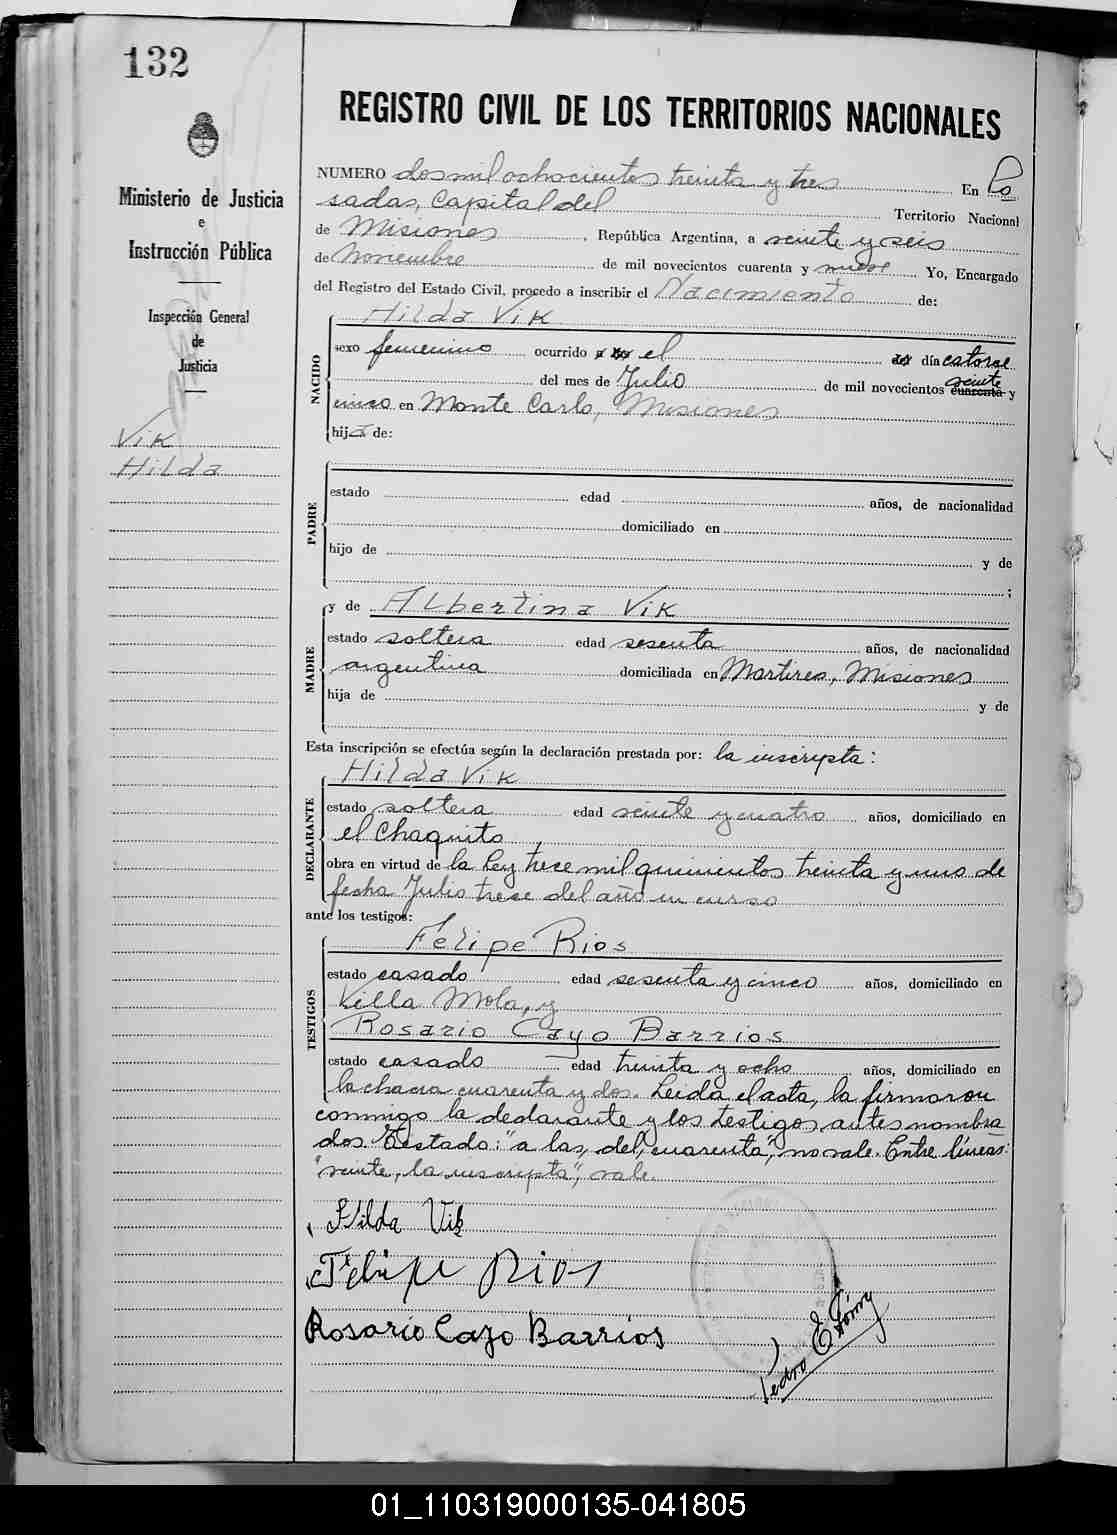 132
Ministerio de Justicia
e
Instrucción Pública
Inspección General
de
Justicia
Vik
Hilda
REGISTRO CIVIL DE LOS TERRITORIOS NACIONALES
NUMERO dos mil ochocientos treinta y tres En Po
sadas, Capital del Territorio Nacional
de Misiones, República Argentina, a veinte y seis
de Noviembre de mil novecientos cuarenta y nueve Yo, Encargado
del Registro del Estado Civil, procedo a inscribir el Nacimiento de:
Hilda Vik
NACIDO
sexo femenino ocurrido a las el del día catorce
del mes de Julio de mil novecientos cuarenta veinte y
cinco en Monte Carlo, Misiones
hija de:
PADRE
estado edad años, de nacionalidad
domiciliado en
hijo de y de
;
MADRE
y de Albertina Vik
estado soltera edad sesenta años, de nacionalidad
argentina domiciliada en Martires, Misiones
hija de y de
Esta inscripción se efectúa según la declaración prestada por: la inscripta:
DECLARANTE
Hilda Vik
estado soltera edad veinte y cuatro años, domiciliado en
el Chaquito
obra en virtud de la Ley trece mil quinientos treinta y uno de
fecha Julio trece del año en curso
ante los testigos:
TESTIGOS
Felipe Rios
estado casado edad sesenta y cinco años, domiciliado en
Villa Mola, y
Rosario Cayo Barrios
estado casado edad treinta y ocho años, domiciliado en
la chacra cuarenta y dos. Leida el acta, la firmaron
conmigo la declarante y los testigos antes nombra
dos. Testado: "a las, del, cuarenta", no vale. Entre líneas:
"veinte, la inscripta", vale.
Hilda Vik
Felipe Rios
Rosario Cayo Barrios
Pedro E.
01_110319000135-041805